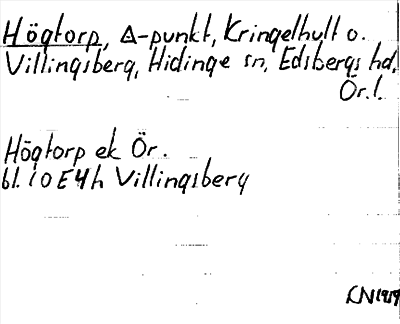 Högtorp, △-punkt, Kringelhult o.
Villingsberg, Hidinge sn, Edsbergs hd,
Ör. l.
Högtorp ek Ör.
bl. 10 E 4 h Villingsberg